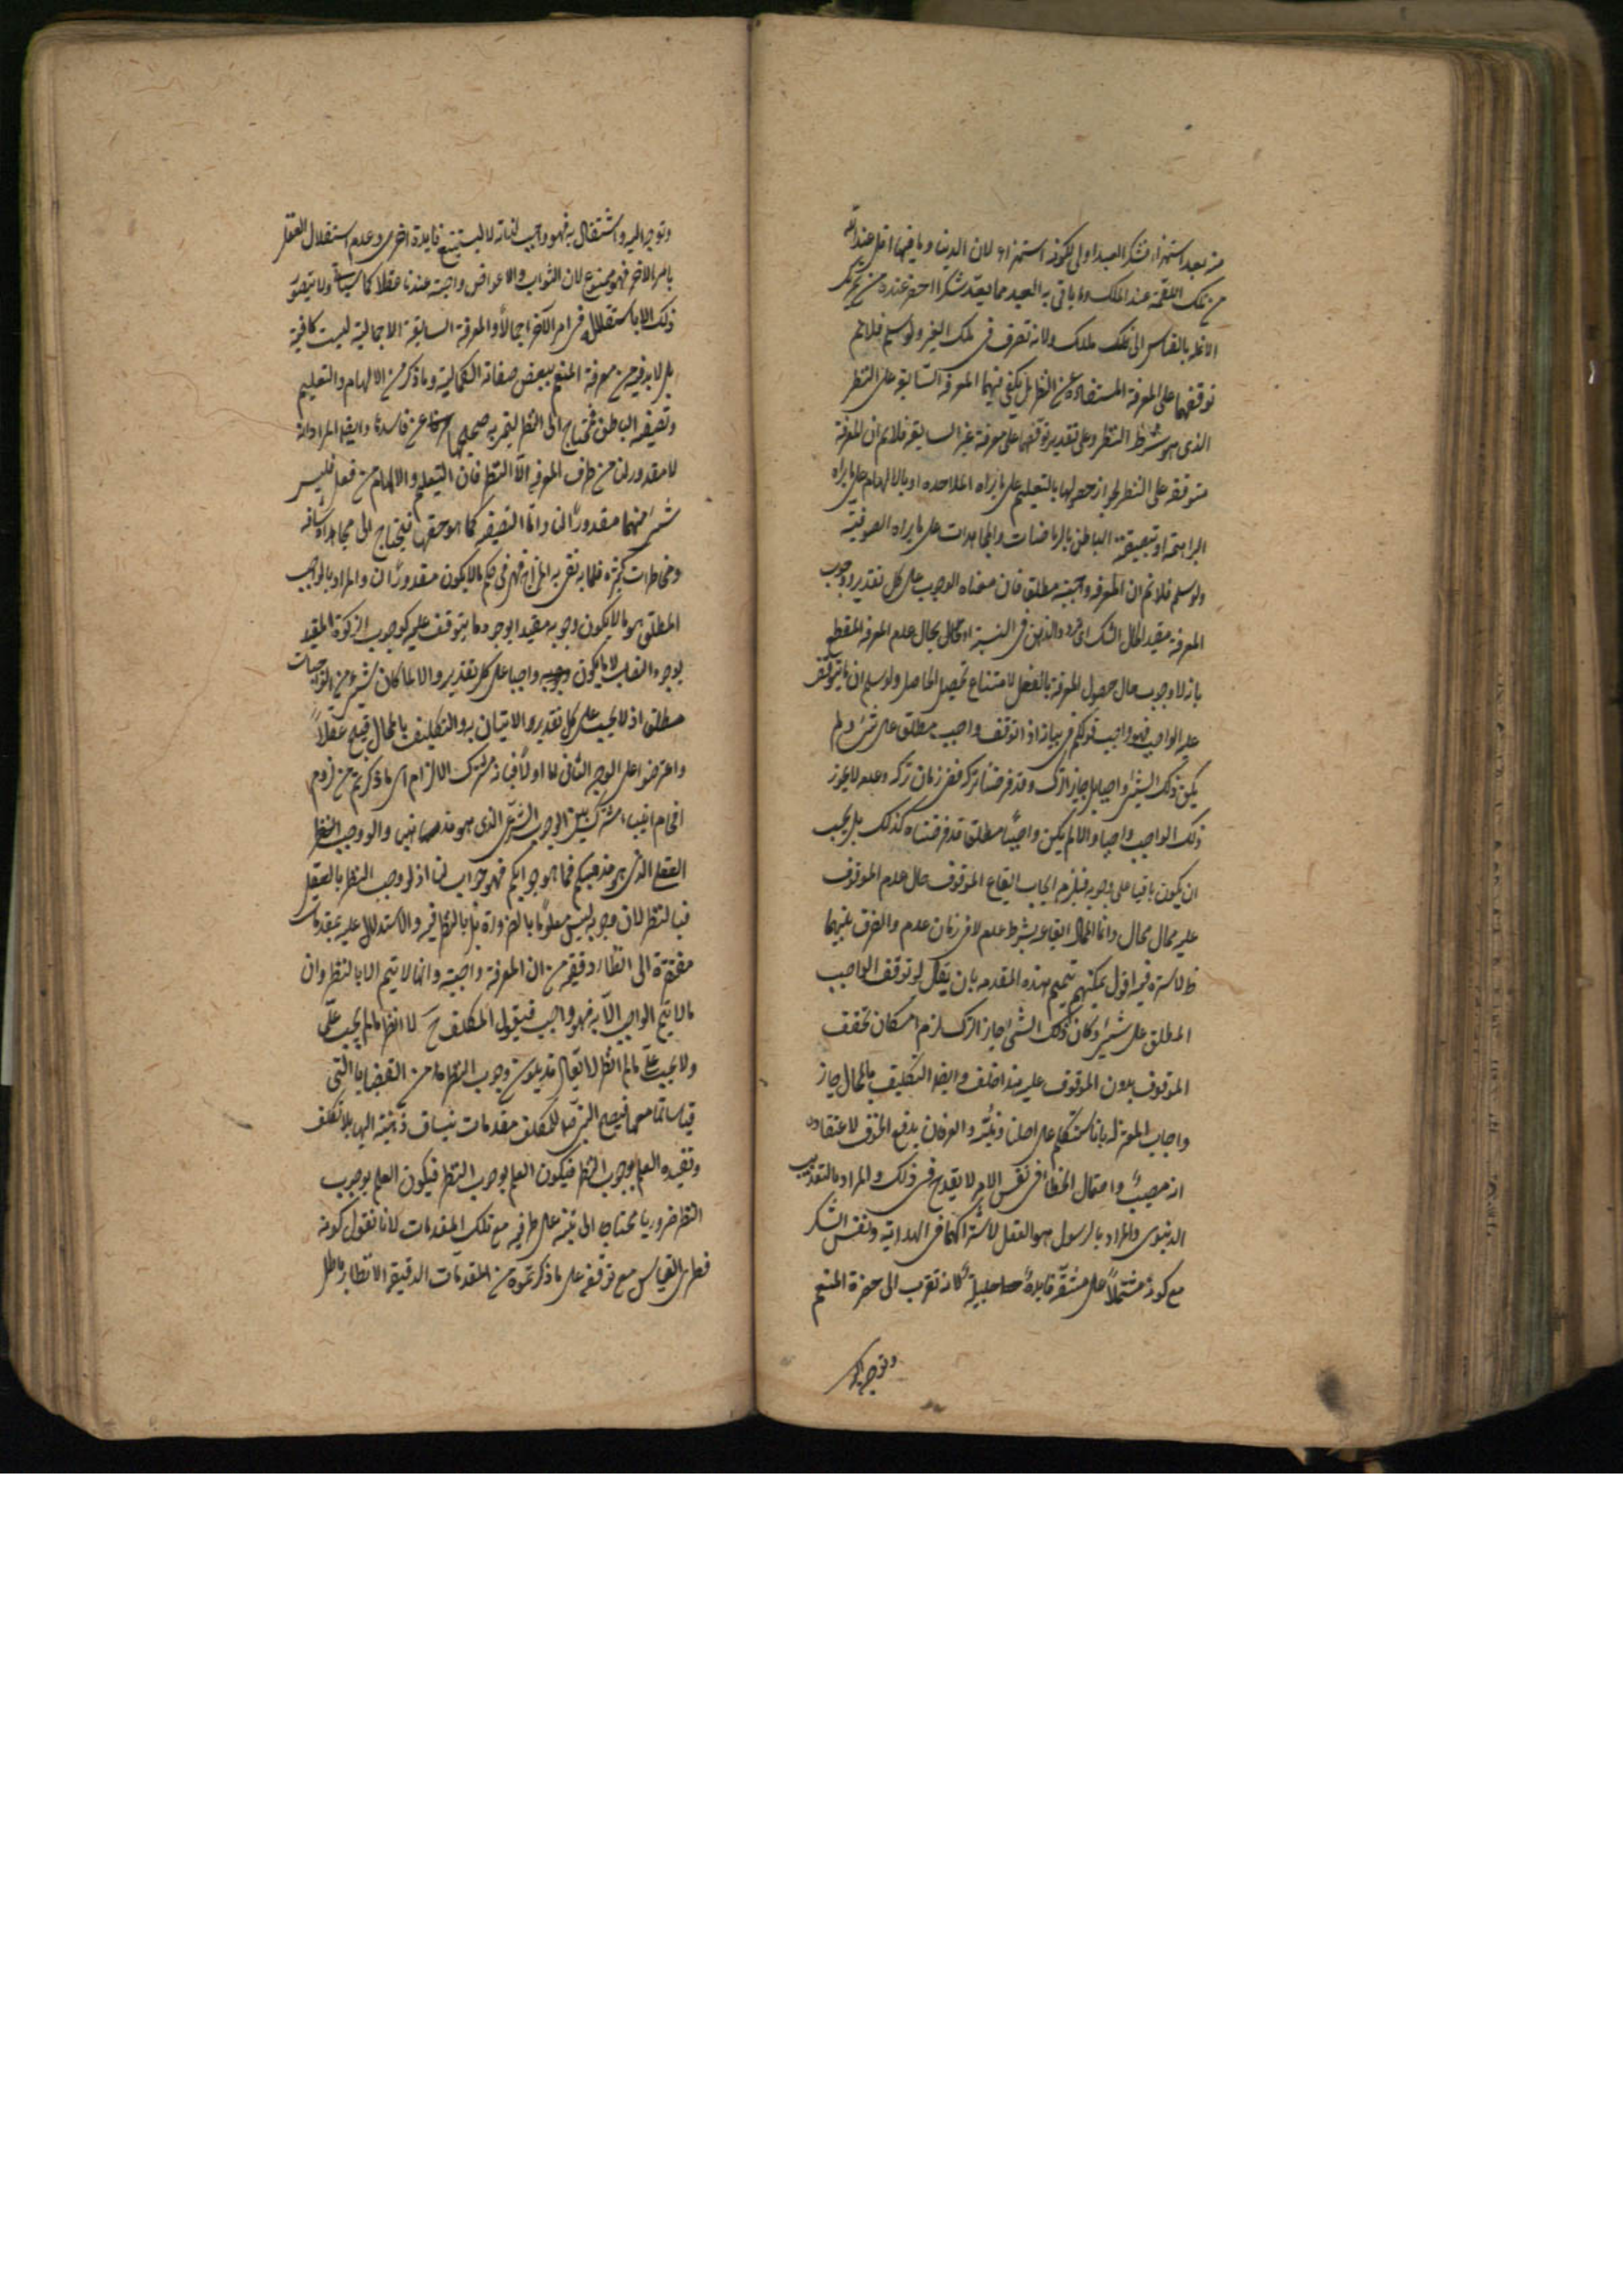 منه يعد استهزاء فشكر العبد اولى بكونه استهزاء لان الدنيا وما فيها اقل عند الله
من تلك اللقمة عند الملك وما ياتى به العبد مما يعد شكرا احقر عنده من تحريك
الانملة بالقياس الى تلك الملك ولانه تصرف فى ملك الغير ولو سلم فلانم
توقفهما على المعرفة المستفادة من النظر بل يكفى فيهما المعرفة السابقة على النظر
الذى هو شرط النظر وعلى تقدير توقفهما على معرفة غير السابقة فلانم ان المعرفة
متوقفة على النظر لجواز حصولها بالتعليم على ما يراه الملاحده او بالالهام على ما يراه
البراهمة او بتصفية الباطن بالرياضات والمجاهدات على ما يراه الصوفية
ولو سلم فلانم ان المعرفة واجبة مطلق فان معناه الوجوب على كل تقدير ووجوب
المعرفة مقيد بحال الشك اى تردد الذهن فى النسبة او بحال عدم المعرفة للقطع
بان لا وجوب حال حصول المعرفة بالفعل لامتناع تحصيل الحاصل ولو سلم ان ما يتوقف
عليه الواجب فهو واجب قولكم فى بيانه اذا توقف واجب مطلق على شئ ولم
يكن ذلك الشئ واجبا بل جايز الترك وقد فرضنا تركه ففى زمان تركه وعدمه لا يجوز
ذلك الواجب واجبا والا لم يكن واجبًا مطلقا وقد فرضناه كذلك بل يجب
ان يكون باقيا على وجوبه فيلزم ايجاب ايقاع الموقوف حال عدم الموقوف
عليه محال محال وانما المحال ايقاعه بشرط عدمه لا فى زمان عدمه والفرق بينهما
ظ لا سترة فيه اقول يمكنهم تتميم هذه المقدمه بان يقال لو توقف الواجب
المطلق على شئ وكان ذلك الشئ جايز الترك لزم امكان تحقق
الموقوف بدون الموقوف عليه هذا خلف وايضا التكليف بالمحال جاز
واجاب المعتزلة بانا نتكلم على اصلنا والعرفان يدفع الخوف لاعتقاده
انه مصيب واحتمال الخطأ فى نفس الامر لا يقدح فى ذلك والمراد بالتعذيب
الدنيوى والمراد بالرسول هو العقل لاشتراكهما فى الهداية ونفس الشكر
مع كونه مشتملاً على مشقة فايدة جليلة لانه تقرب الى حضرة المنعم
وتوجه اليه
وتوجه اليه واشتغال به فهو واجب لذاته لا ليستتبع فايدة اخرى وعدم استقلال العقل
بامر الاخرة فهو ممنوع لان الثواب والاعواض واجبة عندنا عقلا كما سياتى ولا يتصور
ذلك الا باستقلاله فى امر الآخرة اجمالاً والمعرفة السابقة الاجمالية ليست كافية
بل لا بد فيه من معرفة المنعم ببعض صفاته الكمالية وما ذكر من الالهام والتعليم
وتصفية الباطن فمحتاج الى النظر ليتميز به صحيحها عن فاسدها وايضا المراد انه
لا مقدور لنا من طرف المعرفة الا النظر فان التعليم والالهام من فعل فليس
شئ منهما مقدورًا لنا واما التصفية كما هو حقها فيحتاج الى مجاهدات شاقة
ومخاطرات كثيرة قلما يفى به المزاج فهى فى حكم ما لا يكون مقدورًا لنا والمراد بالواجب
المطلق هو ما لا يكون وجوبه مقيدا بوجود ما يتوقف عليه كوجوب الزكوة المقيد
بوجود النصاب لا ما يكون وجوبه واجبا على كل تقدير والا لما كان شئ من الواجبات
مطلق اذ لا يجب على كل تقدير والاتيان به والتكليف بالمحال قبيح عقلاً
واعترضوا على الوجه الثانى لما اولاً فبانه مشترك الالزام اى ما ذكرتم من لزوم
افحام انبياء مشترك بين الوجوب الشرعى الذى هو مذهبنا والوجوب
العقلى الذى هو مذهبكم فما هو جوابكم فهو جوابنا اذ لو وجب النظر بالعقل
فبالنظر لان وجوبه ليس معلومًا بالضرورة بل بالنظر فيه والاستدلال عليه بمقدمات
مفتقرة الى انظار دقيقة من ان المعرفة واجبة وانها لا يتم الا بالنظر وان
ما لا يتم الواجب الا به فهو واجب فيقول المكلف ح لا انظر ما لم يجب على
ولا يجب على ما لم انظر لا يقال قد يكون وجوب النظر من القضايا التى
قياساتها معها فيضع النبى للمكلف مقدمات ينساق ذهنه اليها بلا تكلف
وتفيده العلم بوجوب النظر فيكون العلم بوجوب النظر فيكون العلم بوجوب
النظر ضروريا محتاجا الى تنبيه على طرفيه مع تلك المقدمات لانا نقول كونه
فطرى القياس مع توقفه على ما ذكرتموه من المقدمات الدقيقة الانظار باطل